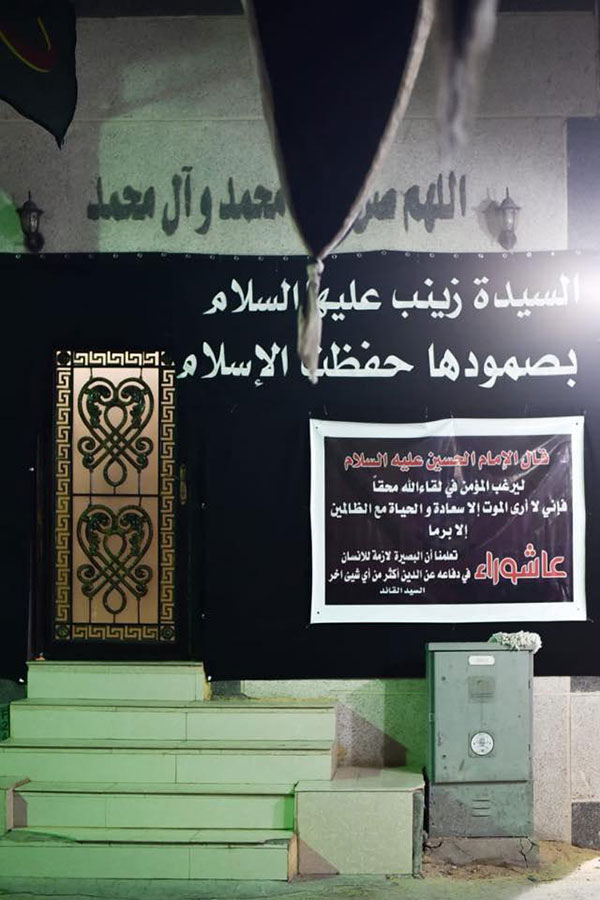 اللهم محمد وآل محمد
السيدة زينب عليها السلام
بصمودها حفظت الإسلام
قال الإمام الحسين عليه السلام
ليرغب المؤمن في لقاءالله محقاً
فإني لا أرى الموت إلا سعادة و الحياة مع الظالمين
إلا برما
عاشوراء
تعلمنا أن البصيرة لازمة للانسان
في دفاعه عن الدين أكثر من أي شيئ اخر
السيد القائد